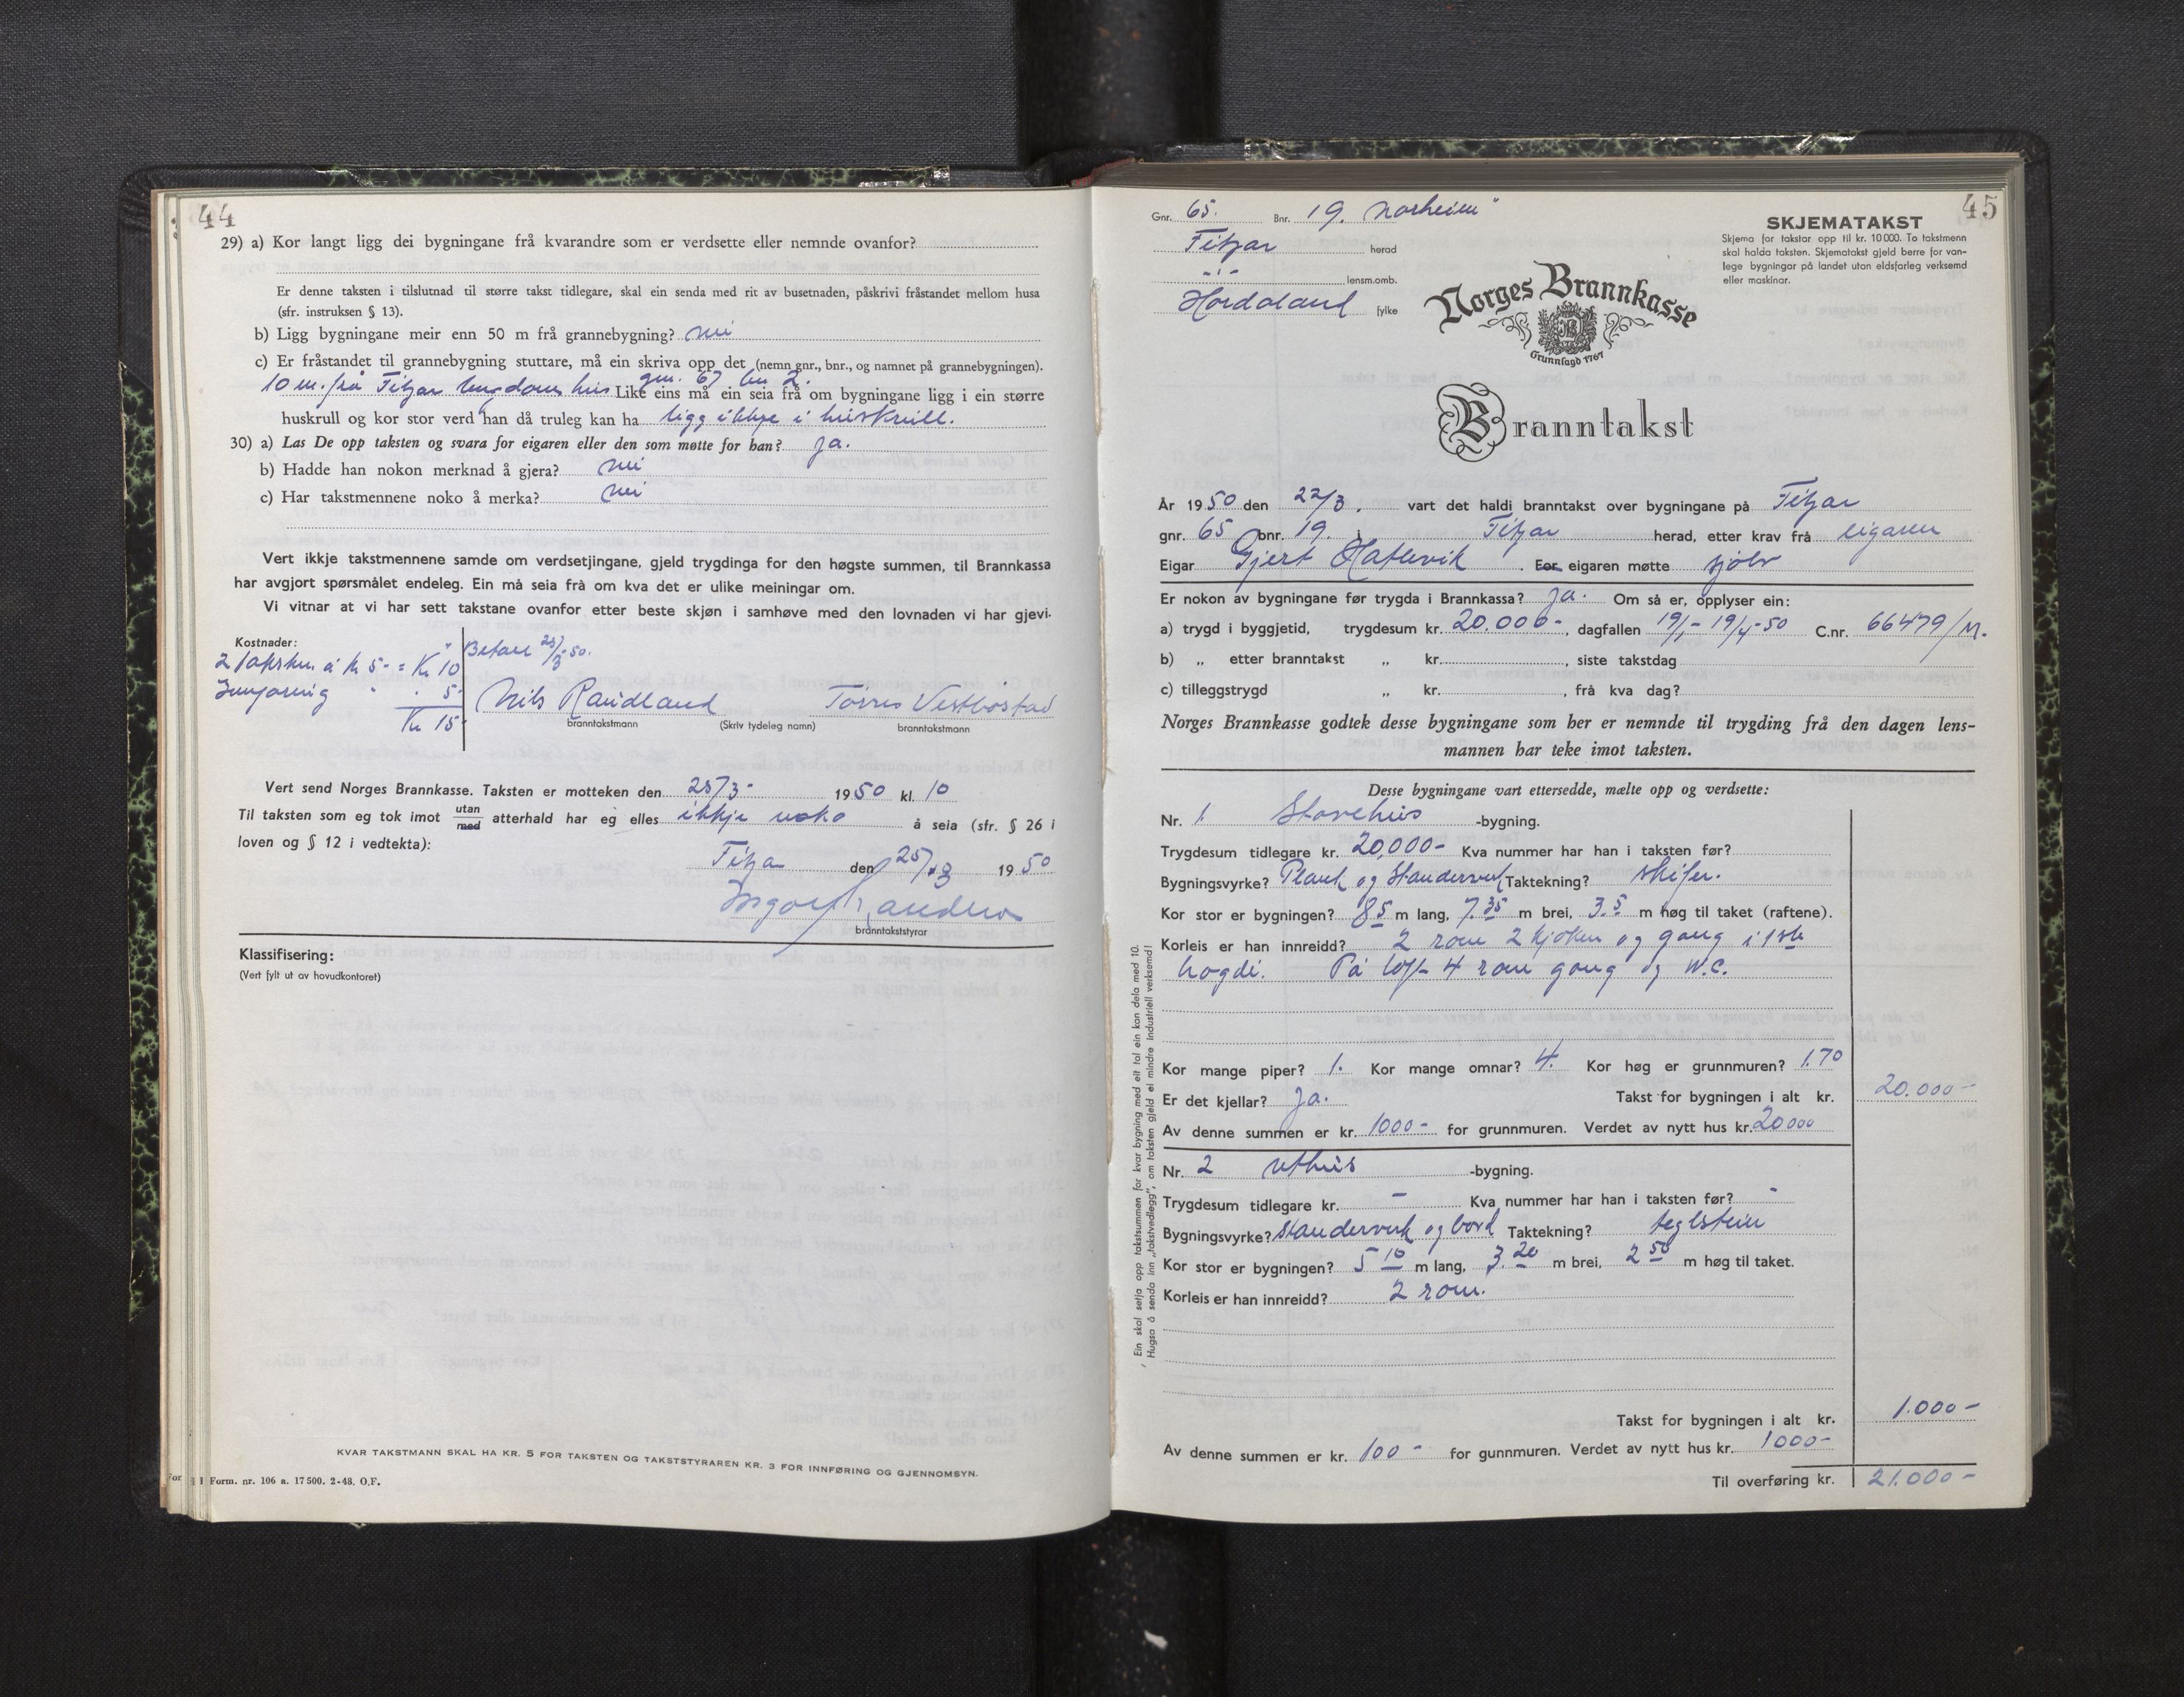 44
29) a) Kor langt ligg dei bygningane frå kvarandre som er verdsette eller nemnde ovanfor?
Er denne taksten i tilslutnad til større takst tidlegare, skal ein senda med rit av busetnaden, påskrivi fråstandet mellom husa
(sfr. instruksen § 13).
b) Ligg bygningane meir enn 50 m frå grannebygning? nei
c) Er fråstandet til grannebygning stuttare, må ein skriva opp det (nemn gnr., bnr., og namnet på grannebygningen).
10 m. frå Fitjar ungdomshus gnr. 67 bn 2. Like eins må ein seia frå om bygningane ligg i ein større
huskrull og kor stor verd han då truleg kan ha ligg ikkje i huskrull.
30) a) Las De opp taksten og svara for eigaren eller den som møtte for han? ja.
b) Hadde han nokon merknad å gjera? nei
c) Har takstmennene noko å merka? nei
Vert ikkje takstmennene samde om verdsetjingane, gjeld trygdinga for den høgste summen, til Brannkassa
har avgjort spørsmålet endeleg. Ein må seia frå om kva det er ulike meiningar om.
Vi vitnar at vi har sett takstane ovanfor etter beste skjøn i samhøve med den lovnaden vi har gjevi.
Kostnader:
2 takstm. á kr 5- = Kr 10
Innføring " . 5-
Kr 15-
Betalt 25/3-50.
Nils Raudland Torres Vestbøstad
branntakstmann (Skriv tydeleg namn) branntakstmann
Vert send Norges Brannkasse. Taksten er motteken den 25/3- 1950 kl. 10
Til taksten som eg tok imot utan/med atterhald har eg elles ikkje noko å seia (sfr. § 26 i
loven og § 12 i vedtekta):
Fitjar den 25/3 1950
branntakststyrar
Klassifisering:
(Vert fylt ut av hovudkontoret)
KVAR TAKSTMANN SKAL HA KR. 5 FOR TAKSTEN OG TAKSTSTYRAREN KR. 3 FOR INNFØRING OG GJENNOMSYN.
Form. nr. 106 a. 17500. 2-48. O.F.
45
Gnr. 65. Bnr. 19. Norheim"
Fitjar herad
- " - lensm.omb.
Hordaland fylke
SKJEMATAKST
Skjema for takstar opp til kr. 10000. To takstmenn
skal halda taksten. Skjematakst gjeld berre for van-
lege bygningar på landet utan eldsfarleg verksemd
eller maskinar.
Norges Brannkasse
Grunnlagd 1767
Branntakst
År 1950 den 22/3. vart det haldi branntakst over bygningane på Fitjar
gnr. 65 bnr. 19. i Fitjar herad, etter krav frå eigaren
Eigar Gjert Hatlevik. For eigaren møtte sjølv
Er nokon av bygningane før trygda i Brannkassa? ja. Om så er, opplyser ein:
a) trygd i byggjetid, trygdesum kr. 20.000-, dagfallen 19/1- 19/4-50 C.nr. 66479/M.
b) „ etter branntakst „ kr. , siste takstdag
c) tilleggstrygd „ kr. , frå kva dag?
Norges Brannkasse godtek desse bygningane som her er nemnde til trygding frå den dagen lens-
mannen har teke imot taksten.
Desse bygningane vart ettersedde, mælte opp og verdsette:
Nr. 1 Stovehus -bygning.
Trygdesum tidlegare kr. 20,000- Kva nummer har han i taksten før?
Bygningsvyrke? Plank og Standerverk Taktekning? skifer.
Kor stor er bygningen? 8.5 m lang, 7.35 m brei, 3.5 m høg til taket (raftene).
Korleis er han innreidd? 2 rom 2 kjøken og gang i 1ste
høgdi. På loft 4 rom gang og W.C.
Kor mange piper? 1. Kor mange omnar? 4. Kor høg er grunnmuren? 1.70
Er det kjellar? Ja. Takst for bygningen i alt kr. 20.000-
Av denne summen er kr. 1000- for grunnmuren. Verdet av nytt hus kr. 20000
Nr. 2 Uthus -bygning.
Trygdesum tidlegare kr. - Kva nummer har han i taksten før? -
Bygningsvyrke? Standerverk og bord Taktekning? teglstein
Kor stor er bygningen? 5 10 m lang, 3.20 m brei, 2 50 m høg til taket.
Korleis er han innreidd? 2 rom.
Takst for bygningen i alt kr. 1.000-
Av denne summen er kr. 100- for gunnmuren. Verdet av nytt hus kr. 1000-
Til overføring kr. 21.000-
Ein skal setja opp takstsummen for kvar bygning med eit tal ein kan dela med 10.
Hugsa å senda inn „takstvedlegg", om taksten gjeld ei mindre industriell verksemd!